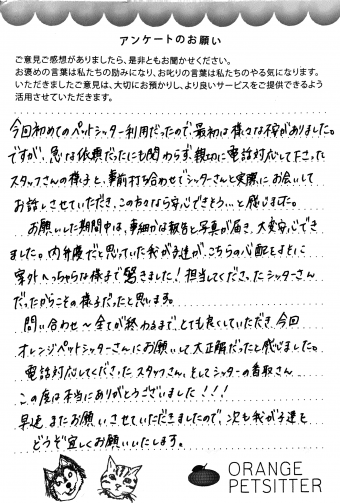 アンケートのお願い
ご意見ご感想がありましたら、是非ともお聞かせください。
お褒めの言葉は私たちの励みになり、お叱りの言葉は私たちのやる気になります。
いただきましたご意見は、大切にお預かりし、より良いサービスをご提供できるよう
活用させていただきます。
今回初めてのペットシッター利用だったので、最初は様々な不安がありました。
ですが、急な依頼だったにも関わらず、親切に電話対応して下さった
スタッフさんの様子と、事前打ち合わせでシッターさんと実際にお会いして
お話しさせていただき、この方なら安心できそう…と感じました。
お願いした期間中は、事細かな報告と写真が届き、大変安心でき
ました。内弁慶だと思っていた我が子達が、こちらの心配をよそに
案外へっちゃらな様子で驚きました!担当してくださったシッターさん
だったからこその様子だったと思います。
問い合わせ〜全てが終わるまで、とても良くしていただき、今回
オレンジペットシッターさんにお願いして大正解だったと感じました。
電話対応してくださったスタッフさん、そしてシッターの香取さん
この度は本当にありがとうございました!!!
早速、またお願いさせていただきましたので、次も我が子達を
どうぞ宜しくお願いいたします。
ORANGE
PETSITTER